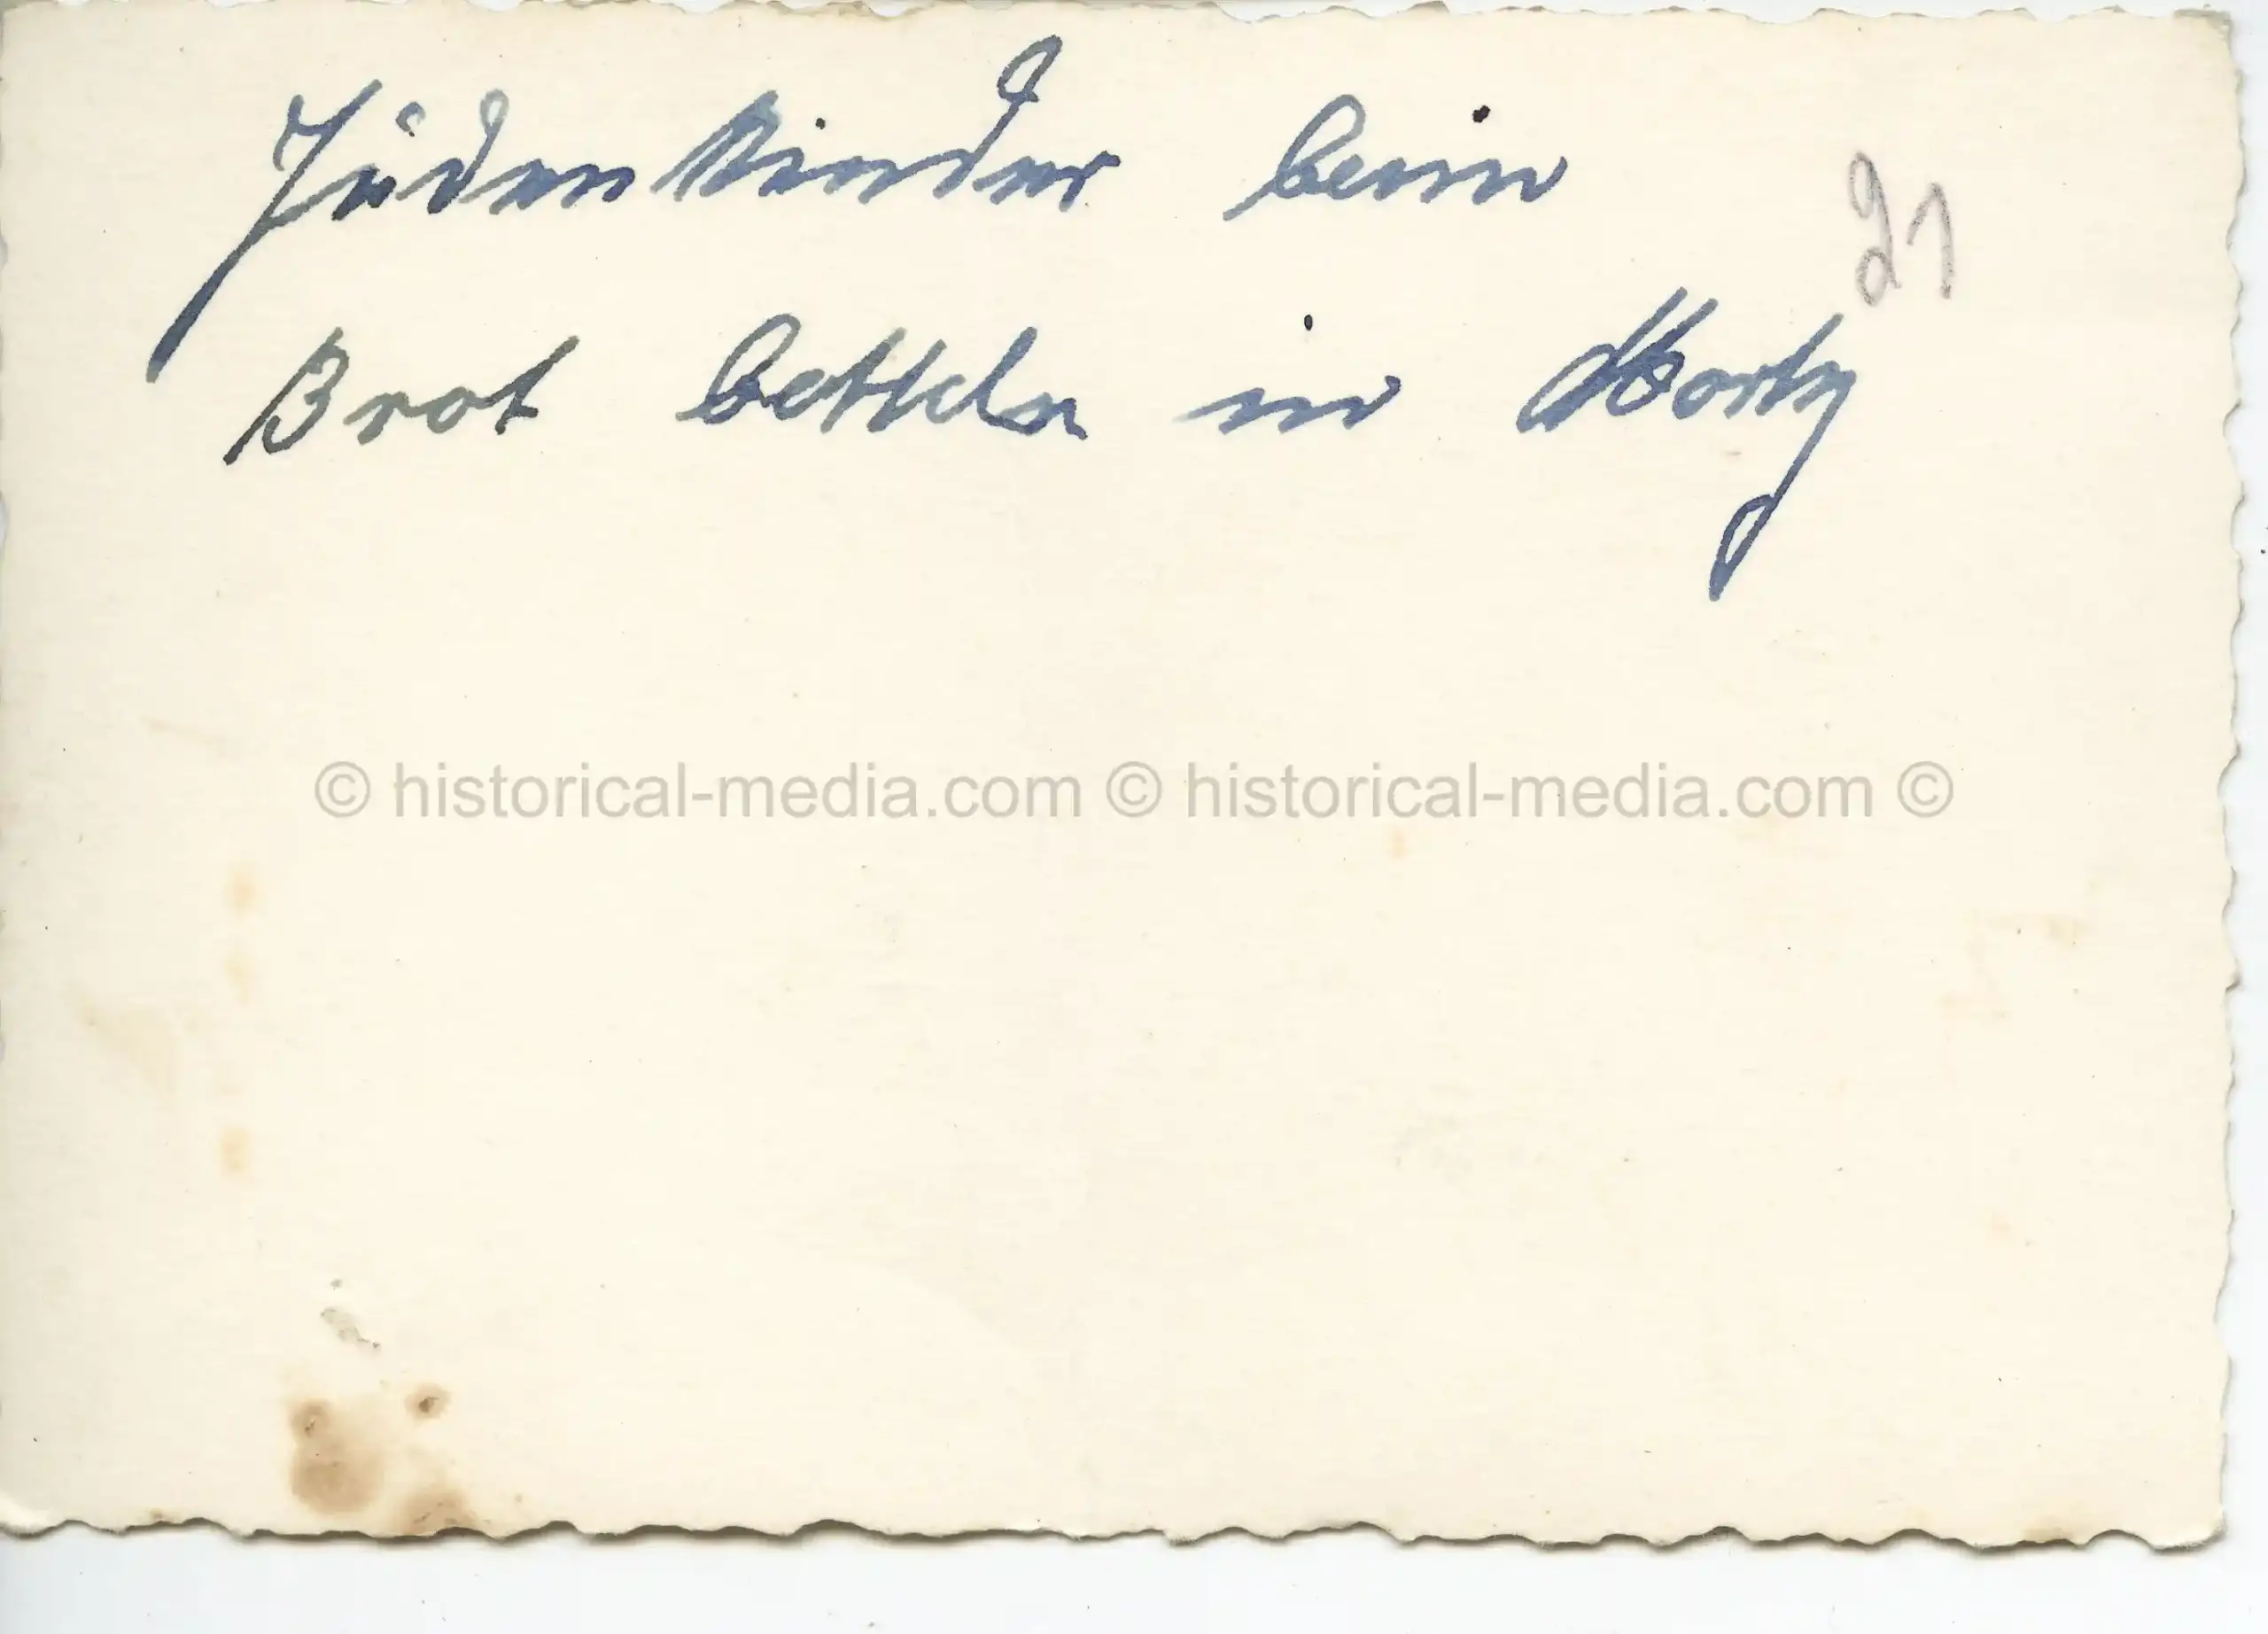 Judenkinder beim
21
Brot betteln in
© historical-media.com © historical-media.com ©